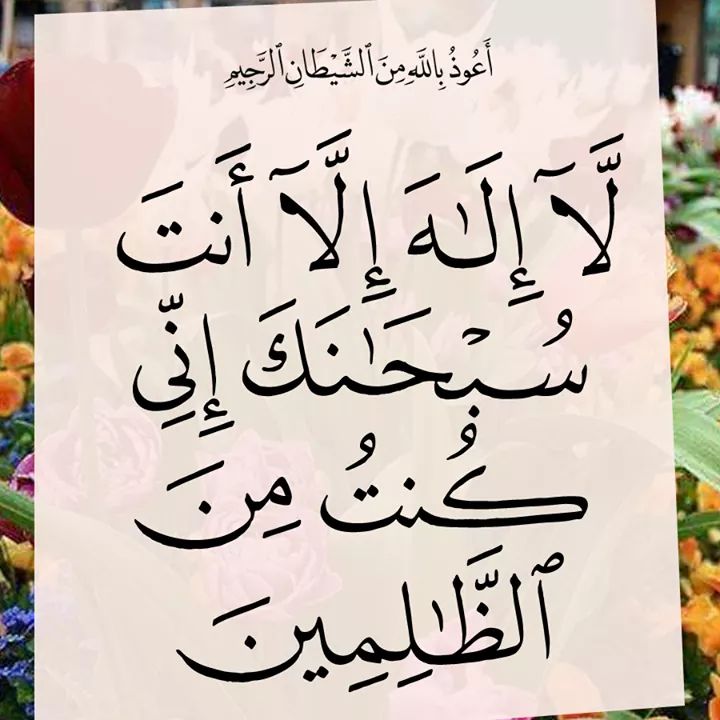 أَعُوذُ بِاللَّهِ مِنَ ٱلشَّيْطَانِ ٱلرَّجِيمِ
لَّآ إِلَـٰهَ إِلَّآ أَنتَ
سُبْحَـٰنَكَ إِنِّى
كُنتُ مِنَ
ٱلظَّـٰلِمِينَ